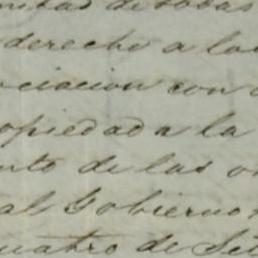 derecho a los
ciacion con
opiedad a la
nto de las
al Gobierno
uatro de Set